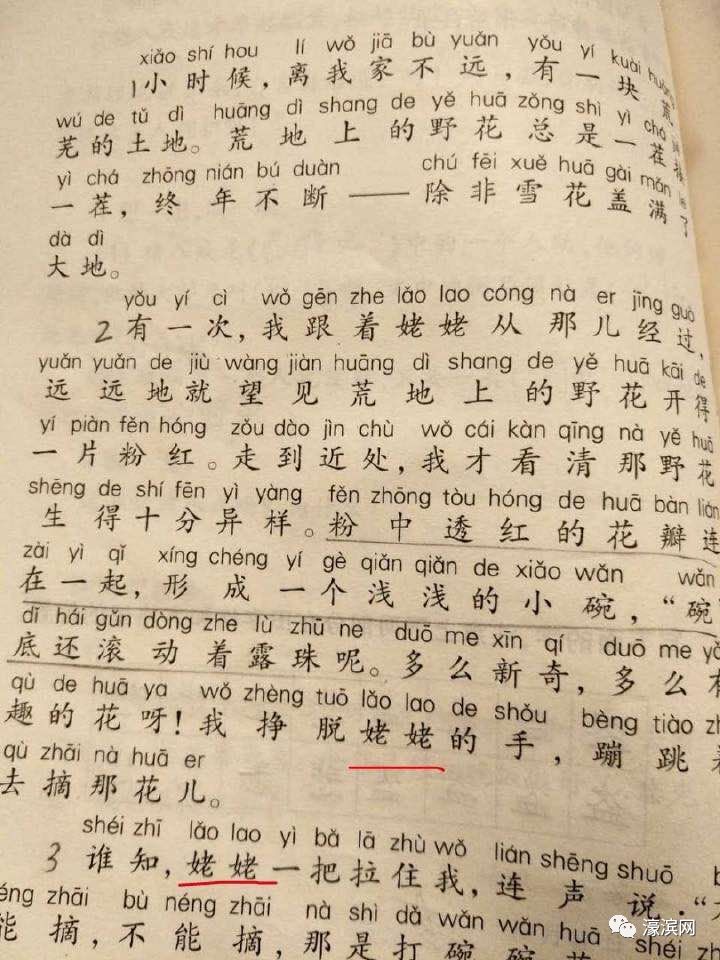 xiǎo shí hou lí wǒ jiā bù yuǎn yǒu yí kuài huāng
1小时候，离我家不远，有一块荒
wú de tǔ dì huāng dì shang de yě huā zǒng shì yì chá
芜的土地。荒地上的野花总是一茬接
yì chá zhōng nián bú duàn chú fēi xuě huā gài mǎn le
一茬，终年不断——除非雪花盖满了
dà dì
大地。
yǒu yí cì wǒ gēn zhe lǎo lao cóng nà er jīng guò
2有一次，我跟着姥姥从那儿经过，
yuǎn yuǎn de jiù wàng jiàn huāng dì shang de yě huā kāi de
远远地就望见荒地上的野花开得
yí piàn fěn hóng zǒu dào jìn chù wǒ cái kàn qīng nà yě huā
一片粉红。走到近处，我才看清那野花
shēng de shí fēn yì yàng fěn zhōng tòu hóng de huā bàn lián
生得十分异样。粉中透红的花瓣连
zài yì qǐ xíng chéng yí gè qiǎn qiǎn de xiǎo wǎn wǎn
在一起，形成一个浅浅的小碗，“碗”
dǐ hái gǔn dòng zhe lù zhū ne duō me xīn qí duō me yǒu
底还滚动着露珠呢。多么新奇，多么有
qù de huā ya wǒ zhèng tuō lǎo lao de shǒu bèng tiào zhe
趣的花呀！我挣脱姥姥的手，蹦跳着
qù zhāi nà huā er
去摘那花儿。
shéi zhī lǎo lao yì bǎ lā zhù wǒ lián shēng shuō
3谁知，姥姥一把拉住我，连声说：“
néng zhāi bù néng zhāi nà shì dǎ wǎn wǎn huā shéi
能摘，不能摘，那是打碗碗花
濠滨网